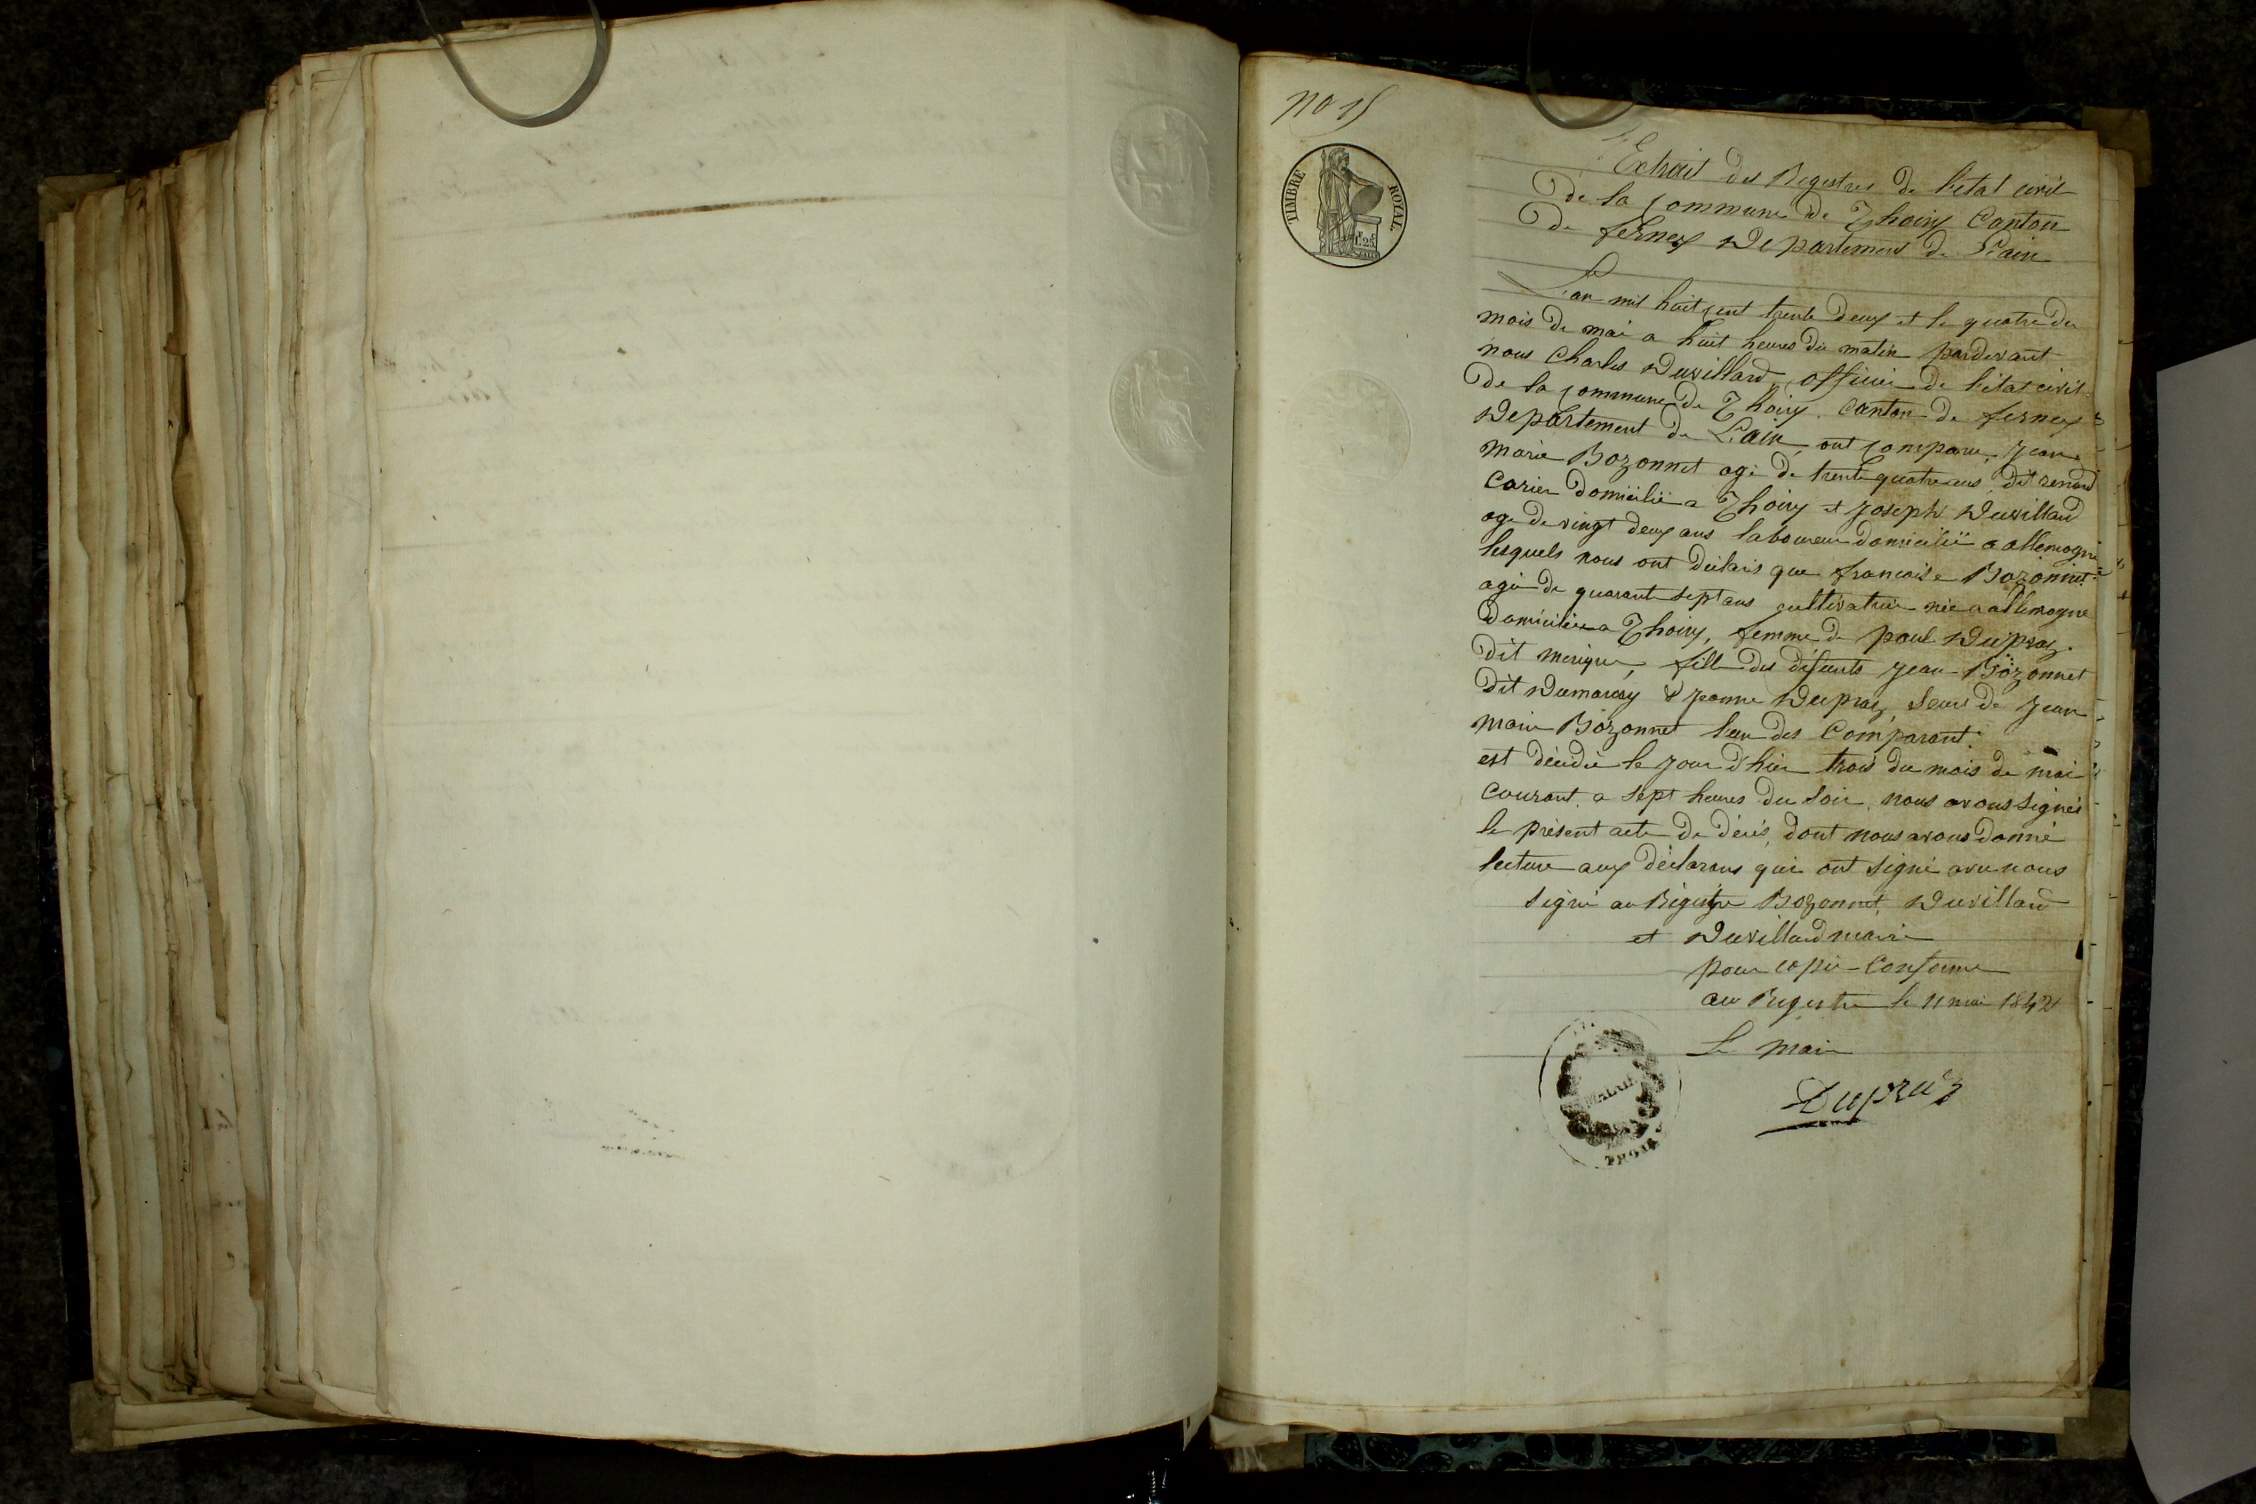 no 15
TIMBRE ROYAL
1F.25
Extrait des Registres de l'etat civil
de la commune de Thoiry Canton
De ferney Departement De L'ain
L'an mil huit cent trente deux et le quatre du
mois De mai a huit heures du matin pardevant
nous Charles Duvillard, officier de l'état civil
De la commune De Thoiry. canton De ferney
Departement De L'ain, ont comparu, Jean
Marie Bozonnet agé De trente quatre ans, dit renard
Carier Domicilié a Thoiry et Joseph Duvillard
agé De vingt deux ans laboureur domicilié a allemogne
lesquels nous ont déclaré que francoise Bozonnet
agée De quarante sept ans cultivatrice née a allemogne
Domiciliée a Thoiry, femme De paul Dupraz
dit merique, fille des défunts Jean Bozonnet
dit Dumaray & Jeanne Dupraz, seur De Jean
marie Bozonnet l'un des Comparant.
est décédée le Jour d'hier trois du mois de mai
Courant, a sept heures du soir, nous avons signés
le présent acte De décés, dont nous avons donné
lecture aux déclarans qui ont signé avec nous
signé au Régistre Bozonnet, Duvillard
et Duvillard maire
pour copie Conforme
au Registre le 11 mai 1842
Le Maire
Dupraz
MAIRIE
THOIRY